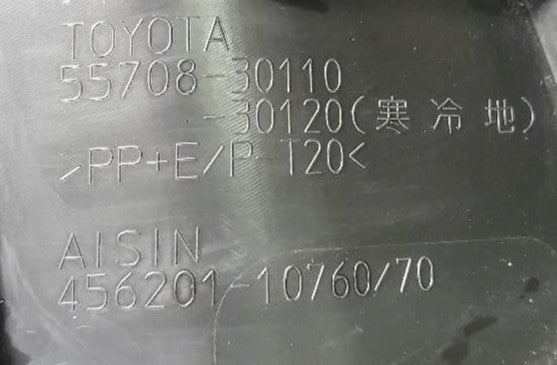 TOYOTA
55708-30110
-30120(寒冷地)
>PP+E/P T20<
AISIN
456201-10760/70